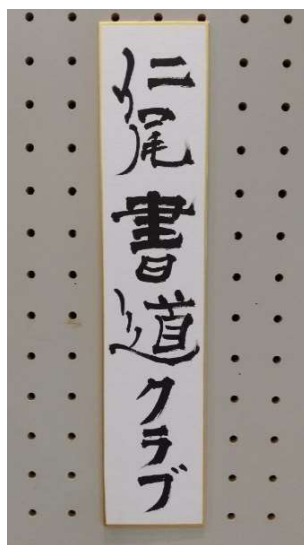 仁尾書道クラブ